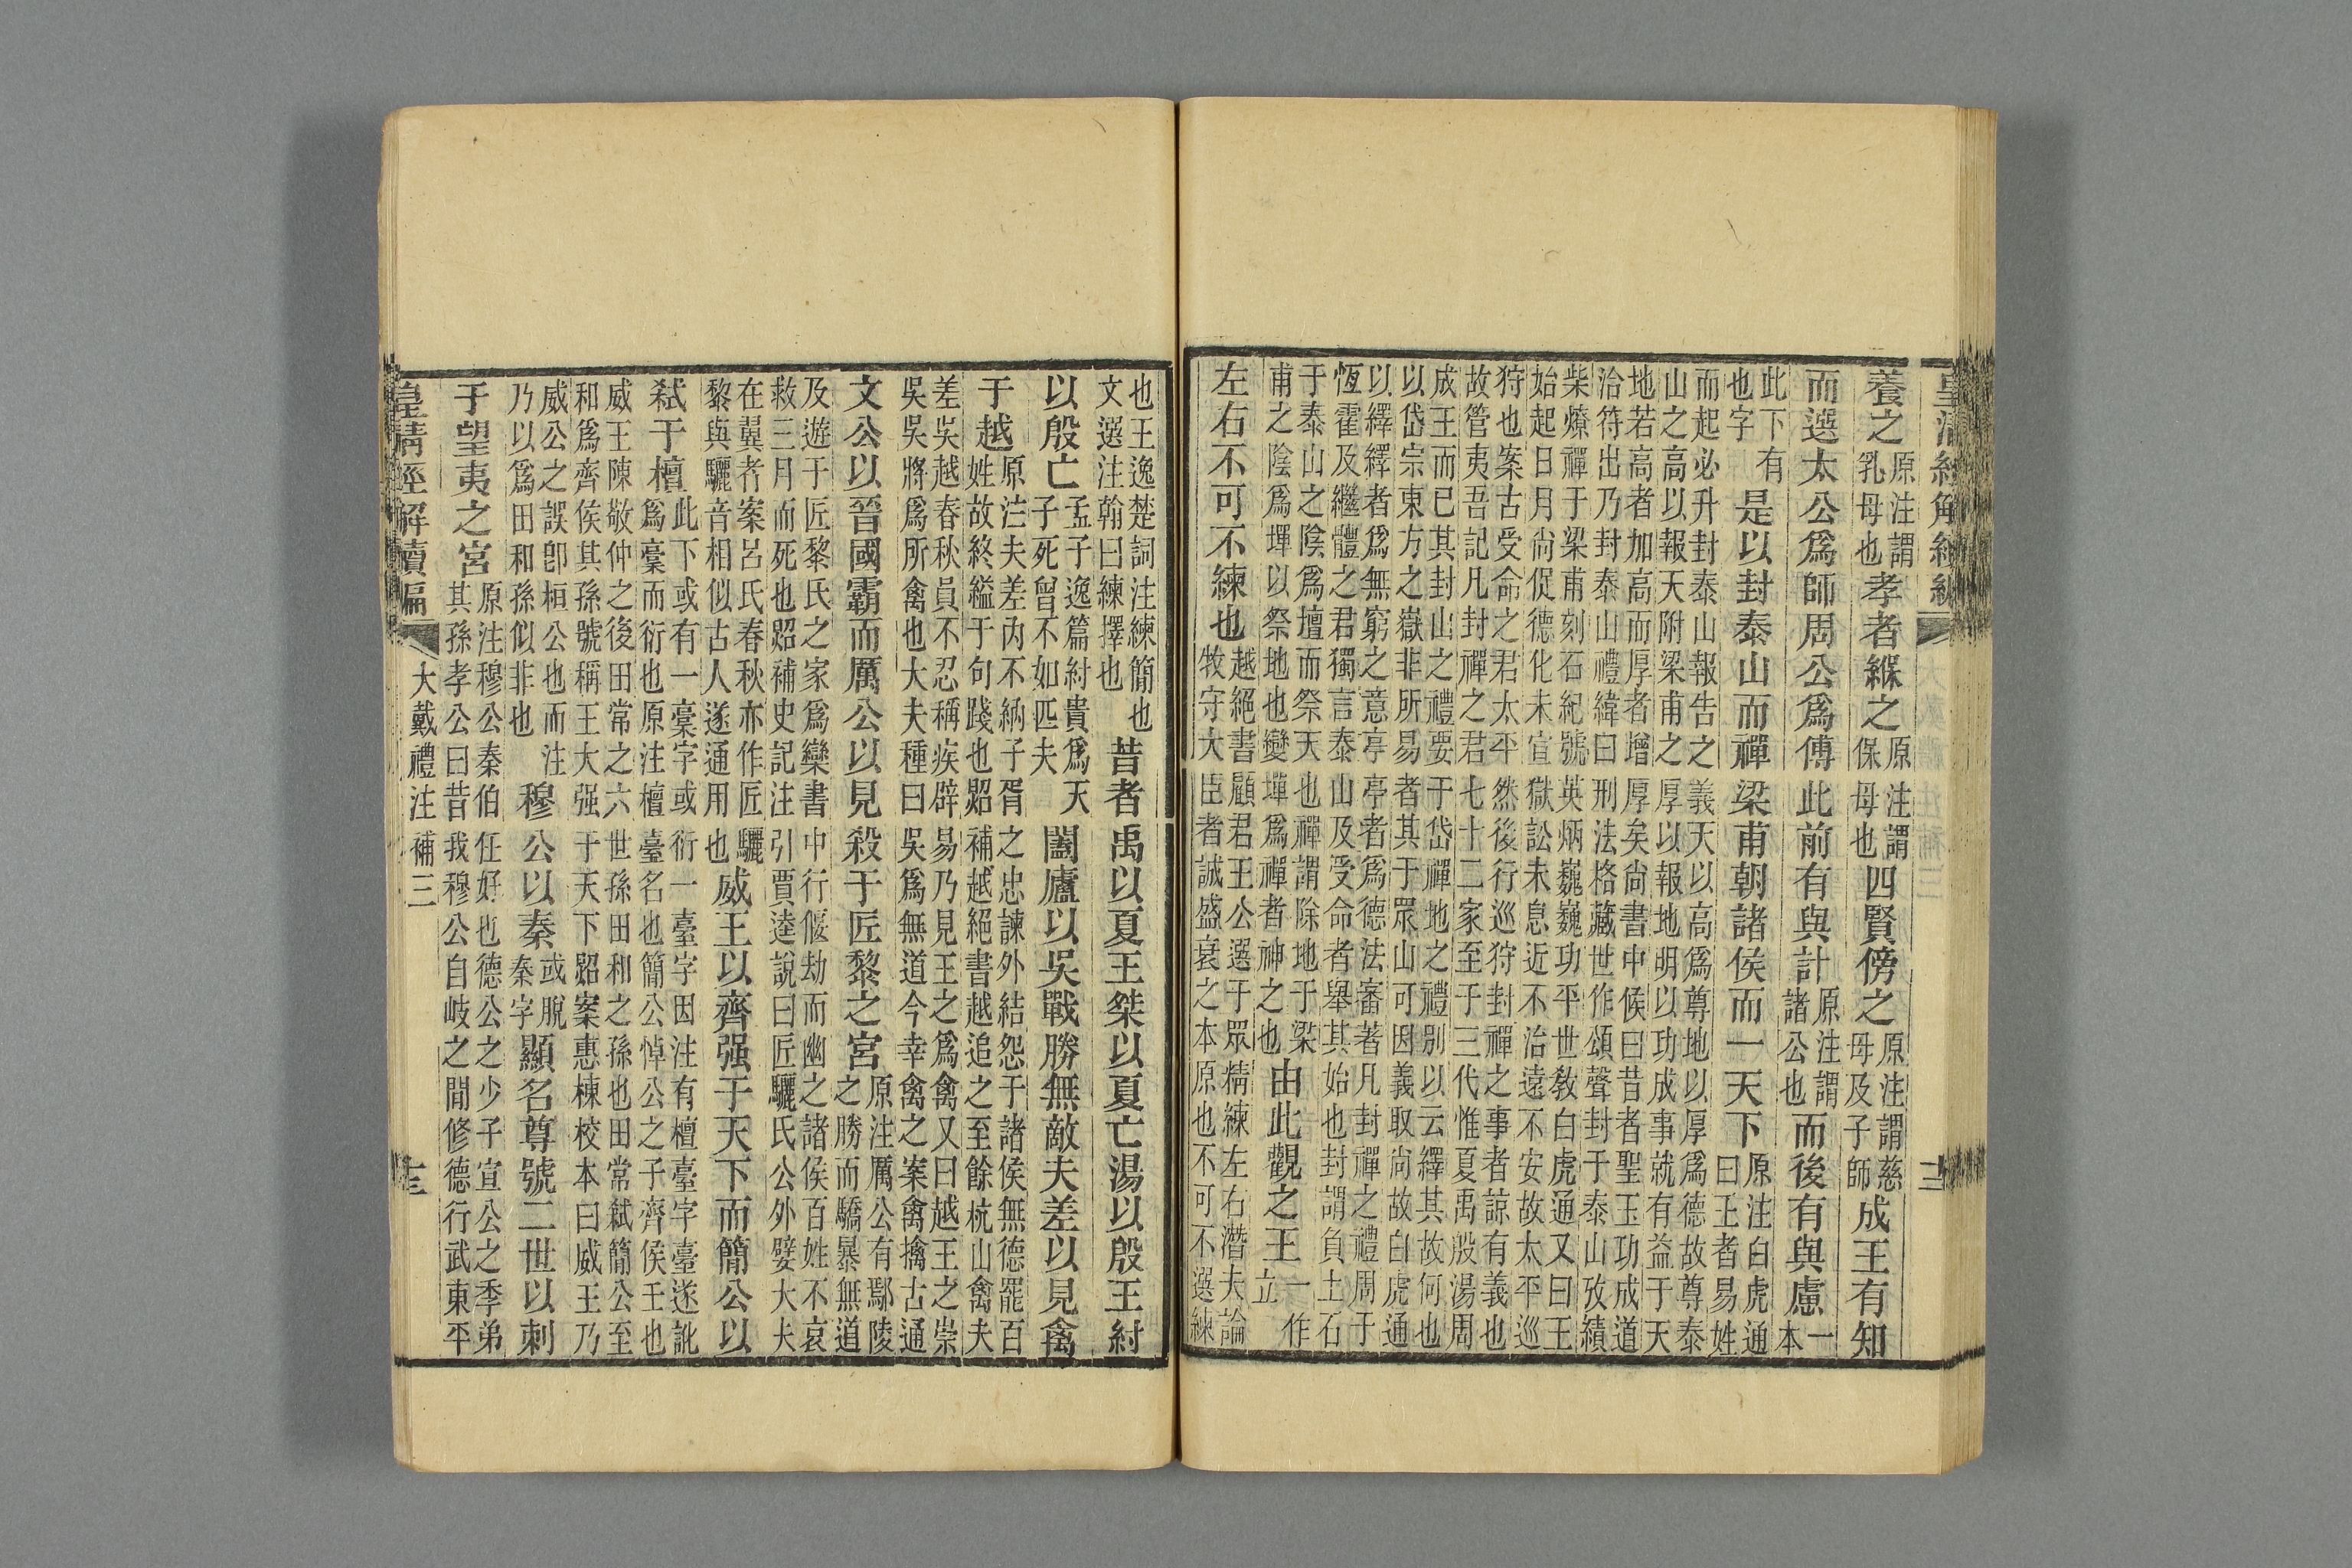 皇清經解續編
養之原注謂乳母也孝者緥之原注謂保母也四賢傍之原注謂慈母及子師成王有知
而選太公爲師周公爲傅此前有與計原注謂諸公也而後有與慮一本
此下有也字是以封泰山而禪梁甫朝諸侯而一天下原注白虎通曰王者易姓
而起必升封泰山報告之義天以高爲尊地以厚爲德故尊泰
山之高以報天附梁甫之厚以報地明以功成事就有益于天
地若高者加高而厚者增厚矣尚書中候曰昔者聖王功成道
洽符出乃封泰山禮緯曰刑法格藏世作頌聲封于泰山攷績
柴燎禪于梁甫刻石紀號英炳巍巍功平世敎白虎通又曰王
始起日月尚促德化未宣獄訟未息近不治遠不安故太平巡
狩也案古受命之君太平然後行巡狩封禪之事者諒有義也
故管夷吾記凡封禪之君七十二家至于三代惟夏禹殷湯周
成王而已其封山之禮要于岱禪地之禮別以云繹其故何也
以岱宗東方之嶽非所易者其于眾山可因義取尚故白虎通
以繹繹者爲無窮之意亭亭者爲德法審著凡封禪之禮周于
恆霍及繼體之君獨言泰山及受命者舉其始也封謂負土石
于泰山之陰爲壇而祭天也禪謂除地于梁
甫之陰爲墠以祭地也變墠爲禪者神之也由此觀之王一作立
左右不可不練也越絕書顧君王公選于眾精練左右潛夫論牧守大臣者誠盛衰之本原也不可不選練
也王逸楚詞注練簡也文選注翰曰練擇也昔者禹以夏王桀以夏亡湯以殷王紂
以殷亡孟子逸篇紂貴爲天子死曾不如匹夫闔廬以吳戰勝無敵夫差以見禽
于越原注夫差內不納子胥之忠諫外結怨于諸侯無德罷百姓故終縊于句踐也跽補越絕書越追之至餘杭山禽夫
差吳越春秋員不忍稱疾辟易乃見王之爲禽又曰越王之崇
吳吳將爲所禽也大夫種曰吳爲無道今幸禽之案禽擒古通
文公以晉國霸而厲公以見殺于匠黎之宮原注厲公有鄢陵之勝而驕暴無道
及遊于匠黎氏之家爲欒書中行偃劫而幽之諸侯百姓不哀
救三月而死也跽補史記注引賈逵說曰匠驪氏公外嬖大夫
在翼者案呂氏春秋亦作匠驪
黎與驪音相似古人遂通用也威王以齊强于天下而簡公以
弒于檀此下或有一臺字或衍一臺字因注有檀臺字臺遂訛爲臺而衍也原注檀臺名也簡公悼公之子齊侯壬也
威王陳敬仲之後田常之六世孫田和之孫也田常弒簡公至
和爲齊侯其孫號稱王大强于天下跽案惠棟校本曰威王乃
威公之誤卽桓公也而注
乃以爲田和孫似非也穆公以秦或脫秦字顯名尊號二世以刺
于望夷之宮原注穆公秦伯任好也德公之少子宣公之季弟其孫孝公曰昔我穆公自岐之間修德行武東平
皇淸經解續編 大戴禮注補三 十三